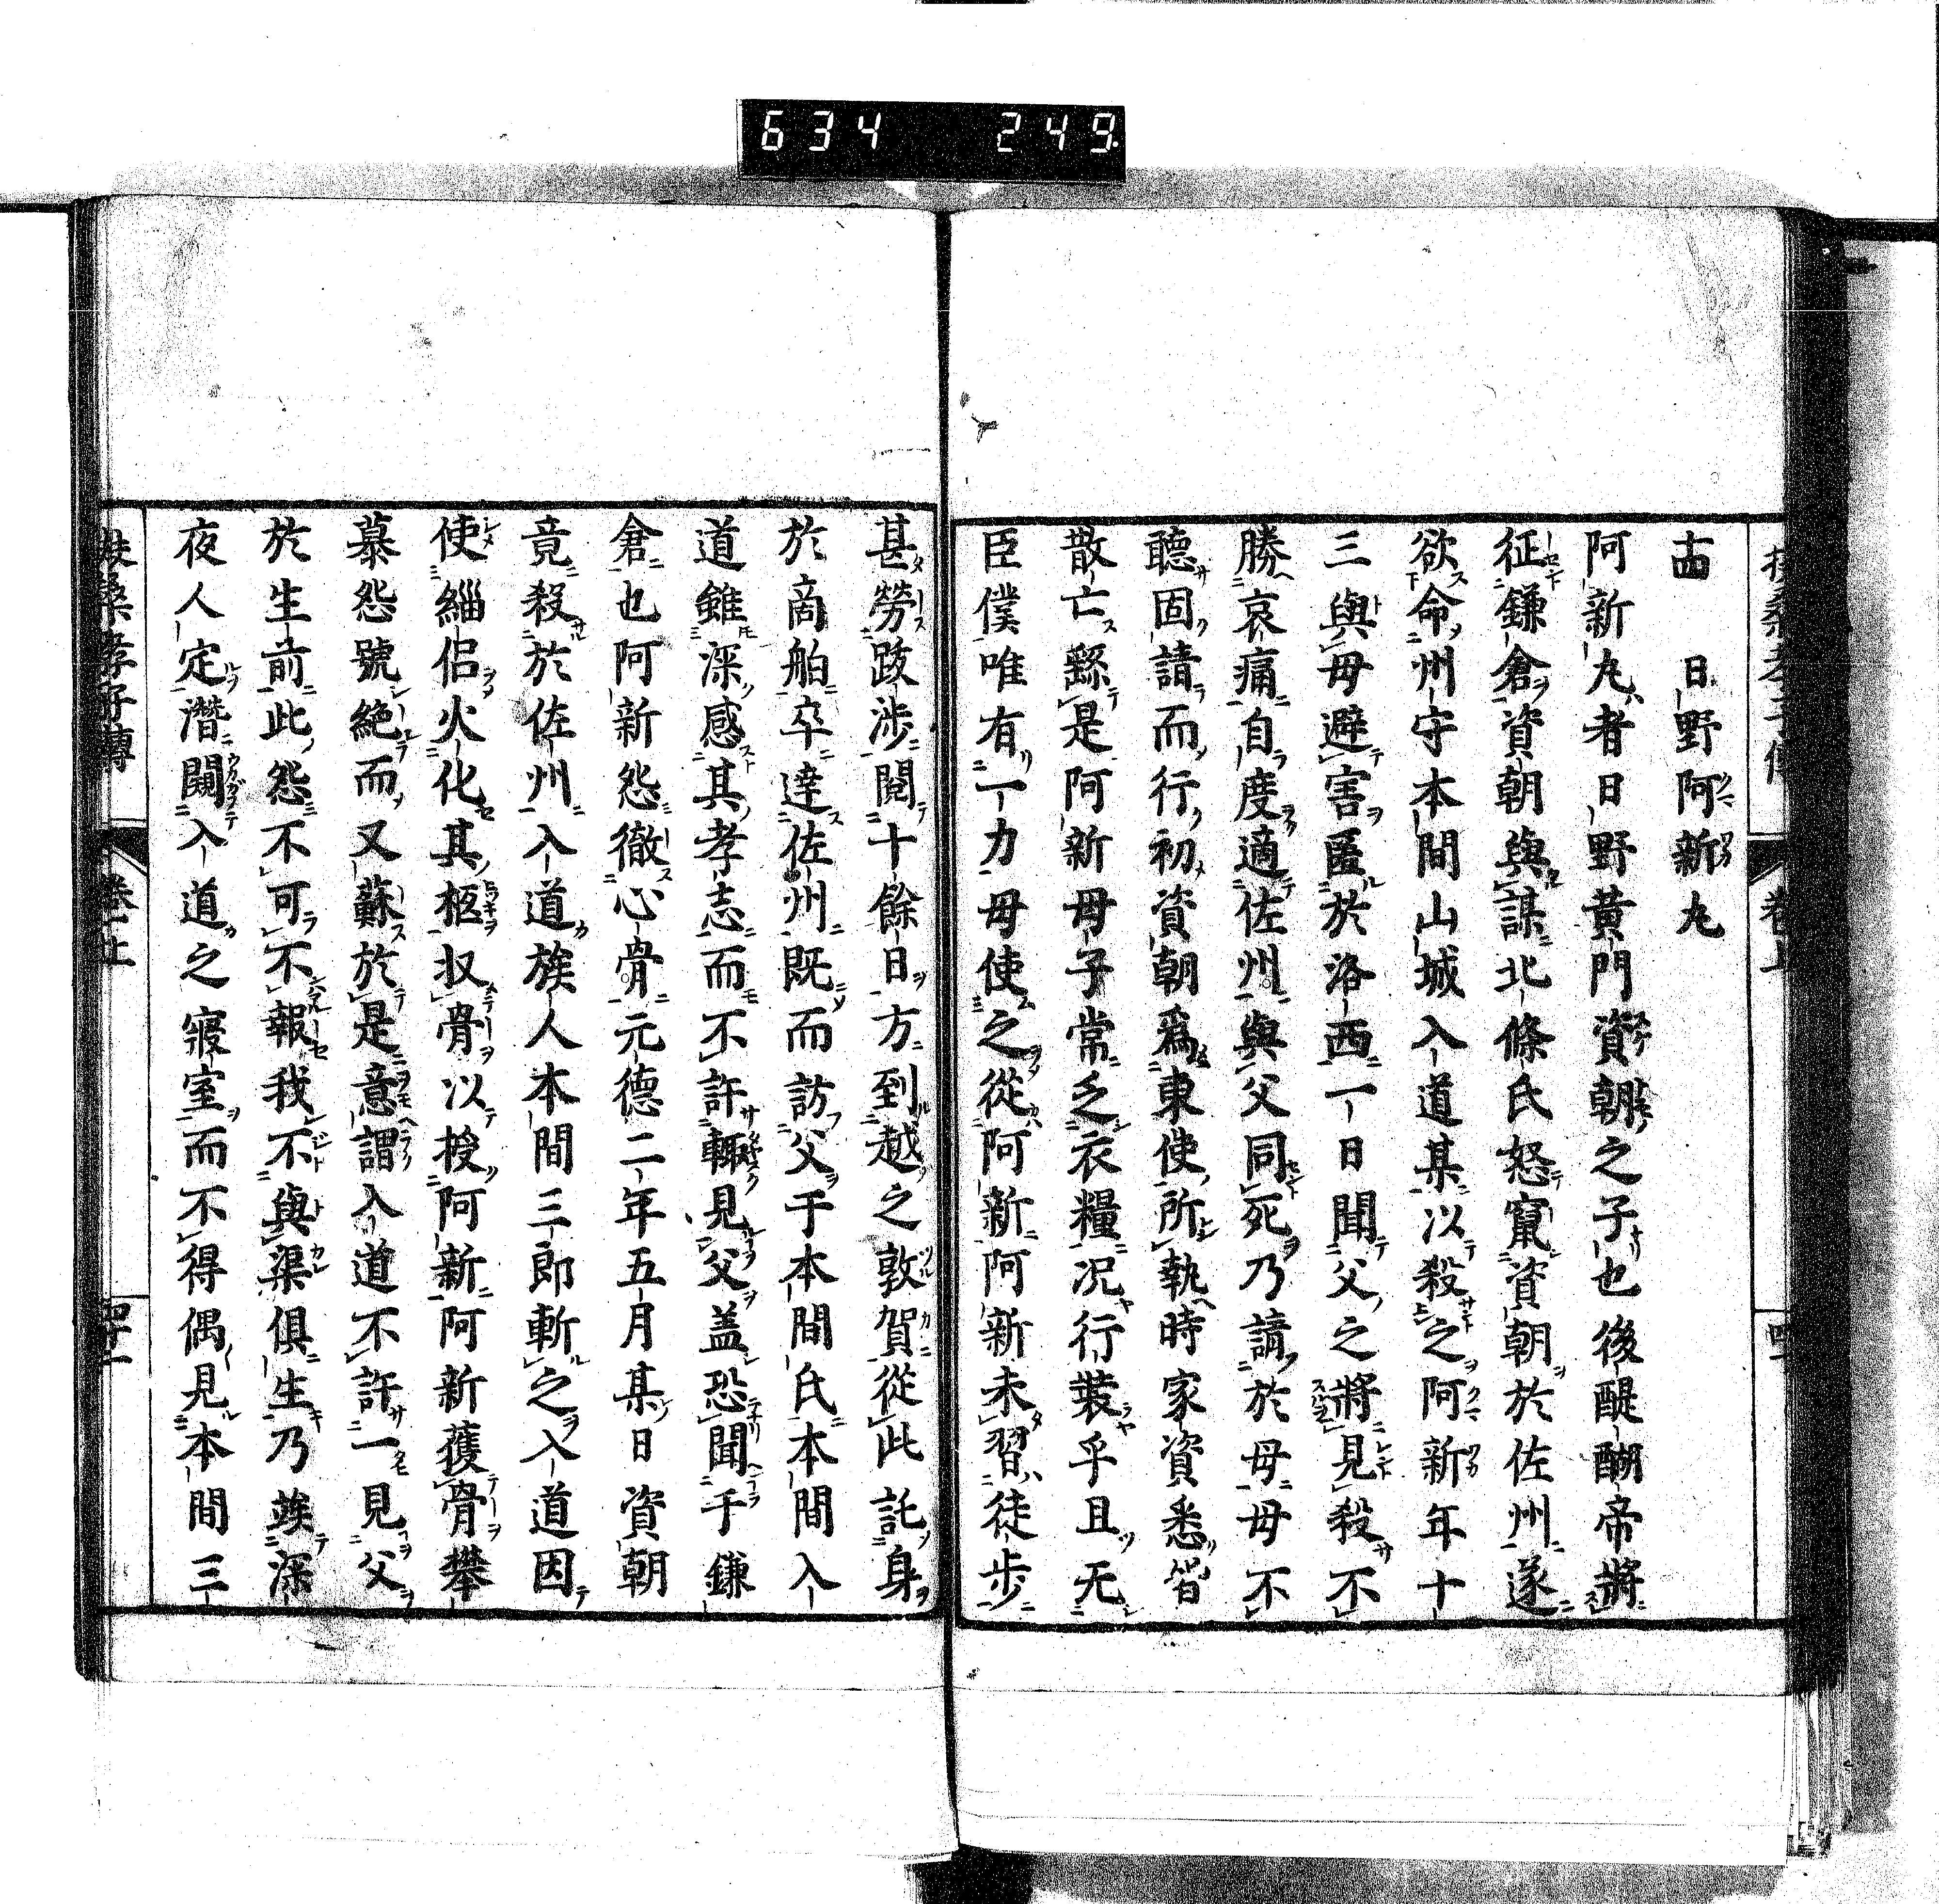 634 249
十四 日野阿新丸
阿新丸者日野黃門資朝之子也後醍醐帝將
征鎌倉資朝與謀北條氏怒竄資朝於佐州遂
欲命州守本間山城入道某以殺之阿新年十
三與母避害匿於洛西一日聞父之將見殺不
勝哀痛自度適佐州與父同死乃請於母母不
聽固請而行初資朝爲東使所執時家資悉皆
散亡繇是阿新母子常乏衣糧况行裝乎且无
臣僕唯有一力母使之從阿新阿新未習徒步
甚勞跋涉閱十餘日方到越之敦賀從此託身
於商舶卒達佐州既而訪父于本間氏本間入
道雖深感其孝志而不許輙見父盖恐聞于鎌
倉也阿新怨徹心骨元德二年五月某日資朝
竟殺於佐州入道族人本間三郎斬之入道因
使緇侶火化其柩収骨以授阿新阿新獲骨攀
慕怨號絶而又蘇於是意謂入道不許一見父
於生前此怨不可不報我不與渠俱生乃竢深
夜人定潛闖入道之寢室而不得偶見本間三
扶桑孝子傳 卷上